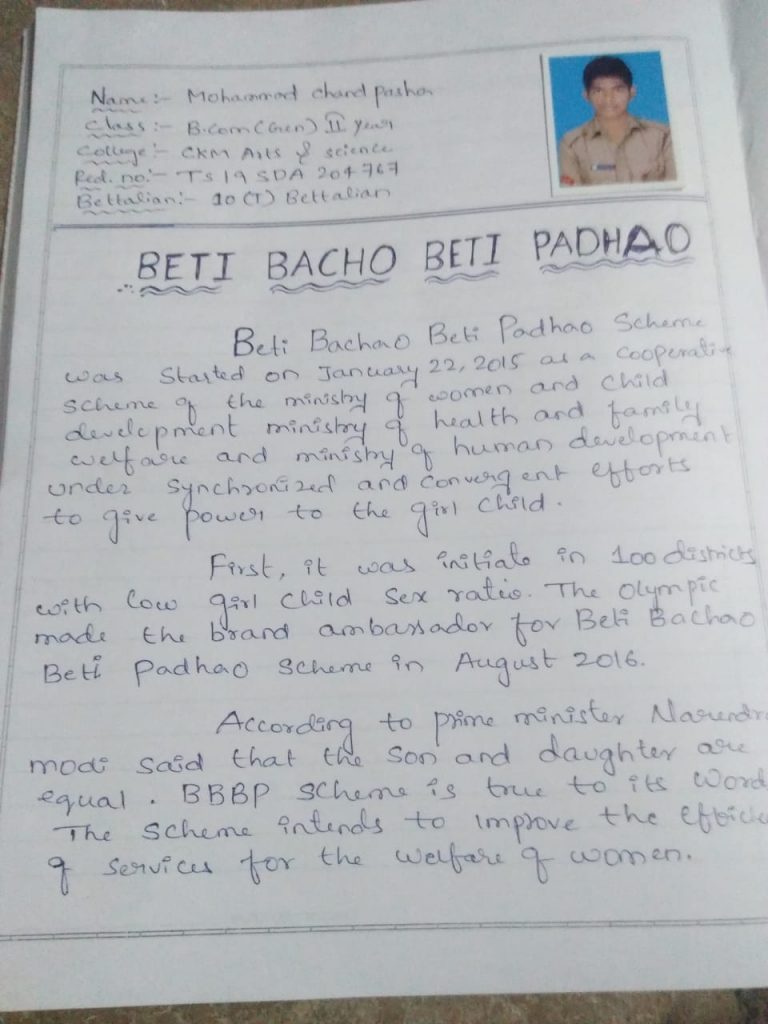 Name:- Mohammad Chand pasha
Class:- B.com (Gen) II year
College:- CKM Arts & science
Red. no:- TS19 SDA 204767
Bettalian:- 10 (T) Bettalian
BETI BACHO BETI PADHAO
Beti Bachao Beti Padhao Scheme
was Started on January 22, 2015 as a cooperativ
scheme of the ministry of women and child
development ministry of health and family
welfare and ministry of human development
under synchronized and convergent efforts
to give power to the girl child.
First, it was initiate in 100 districts
with low girl child sex ratio. The Olympic
made the brand ambassador for Beti Bachao
Beti Padhao scheme in August 2016.
According to prime minister Narendra
modi said that the son and daughter are
equal. BBBP scheme is true to its word
The scheme intends to improve the
of services for the welfare of women.